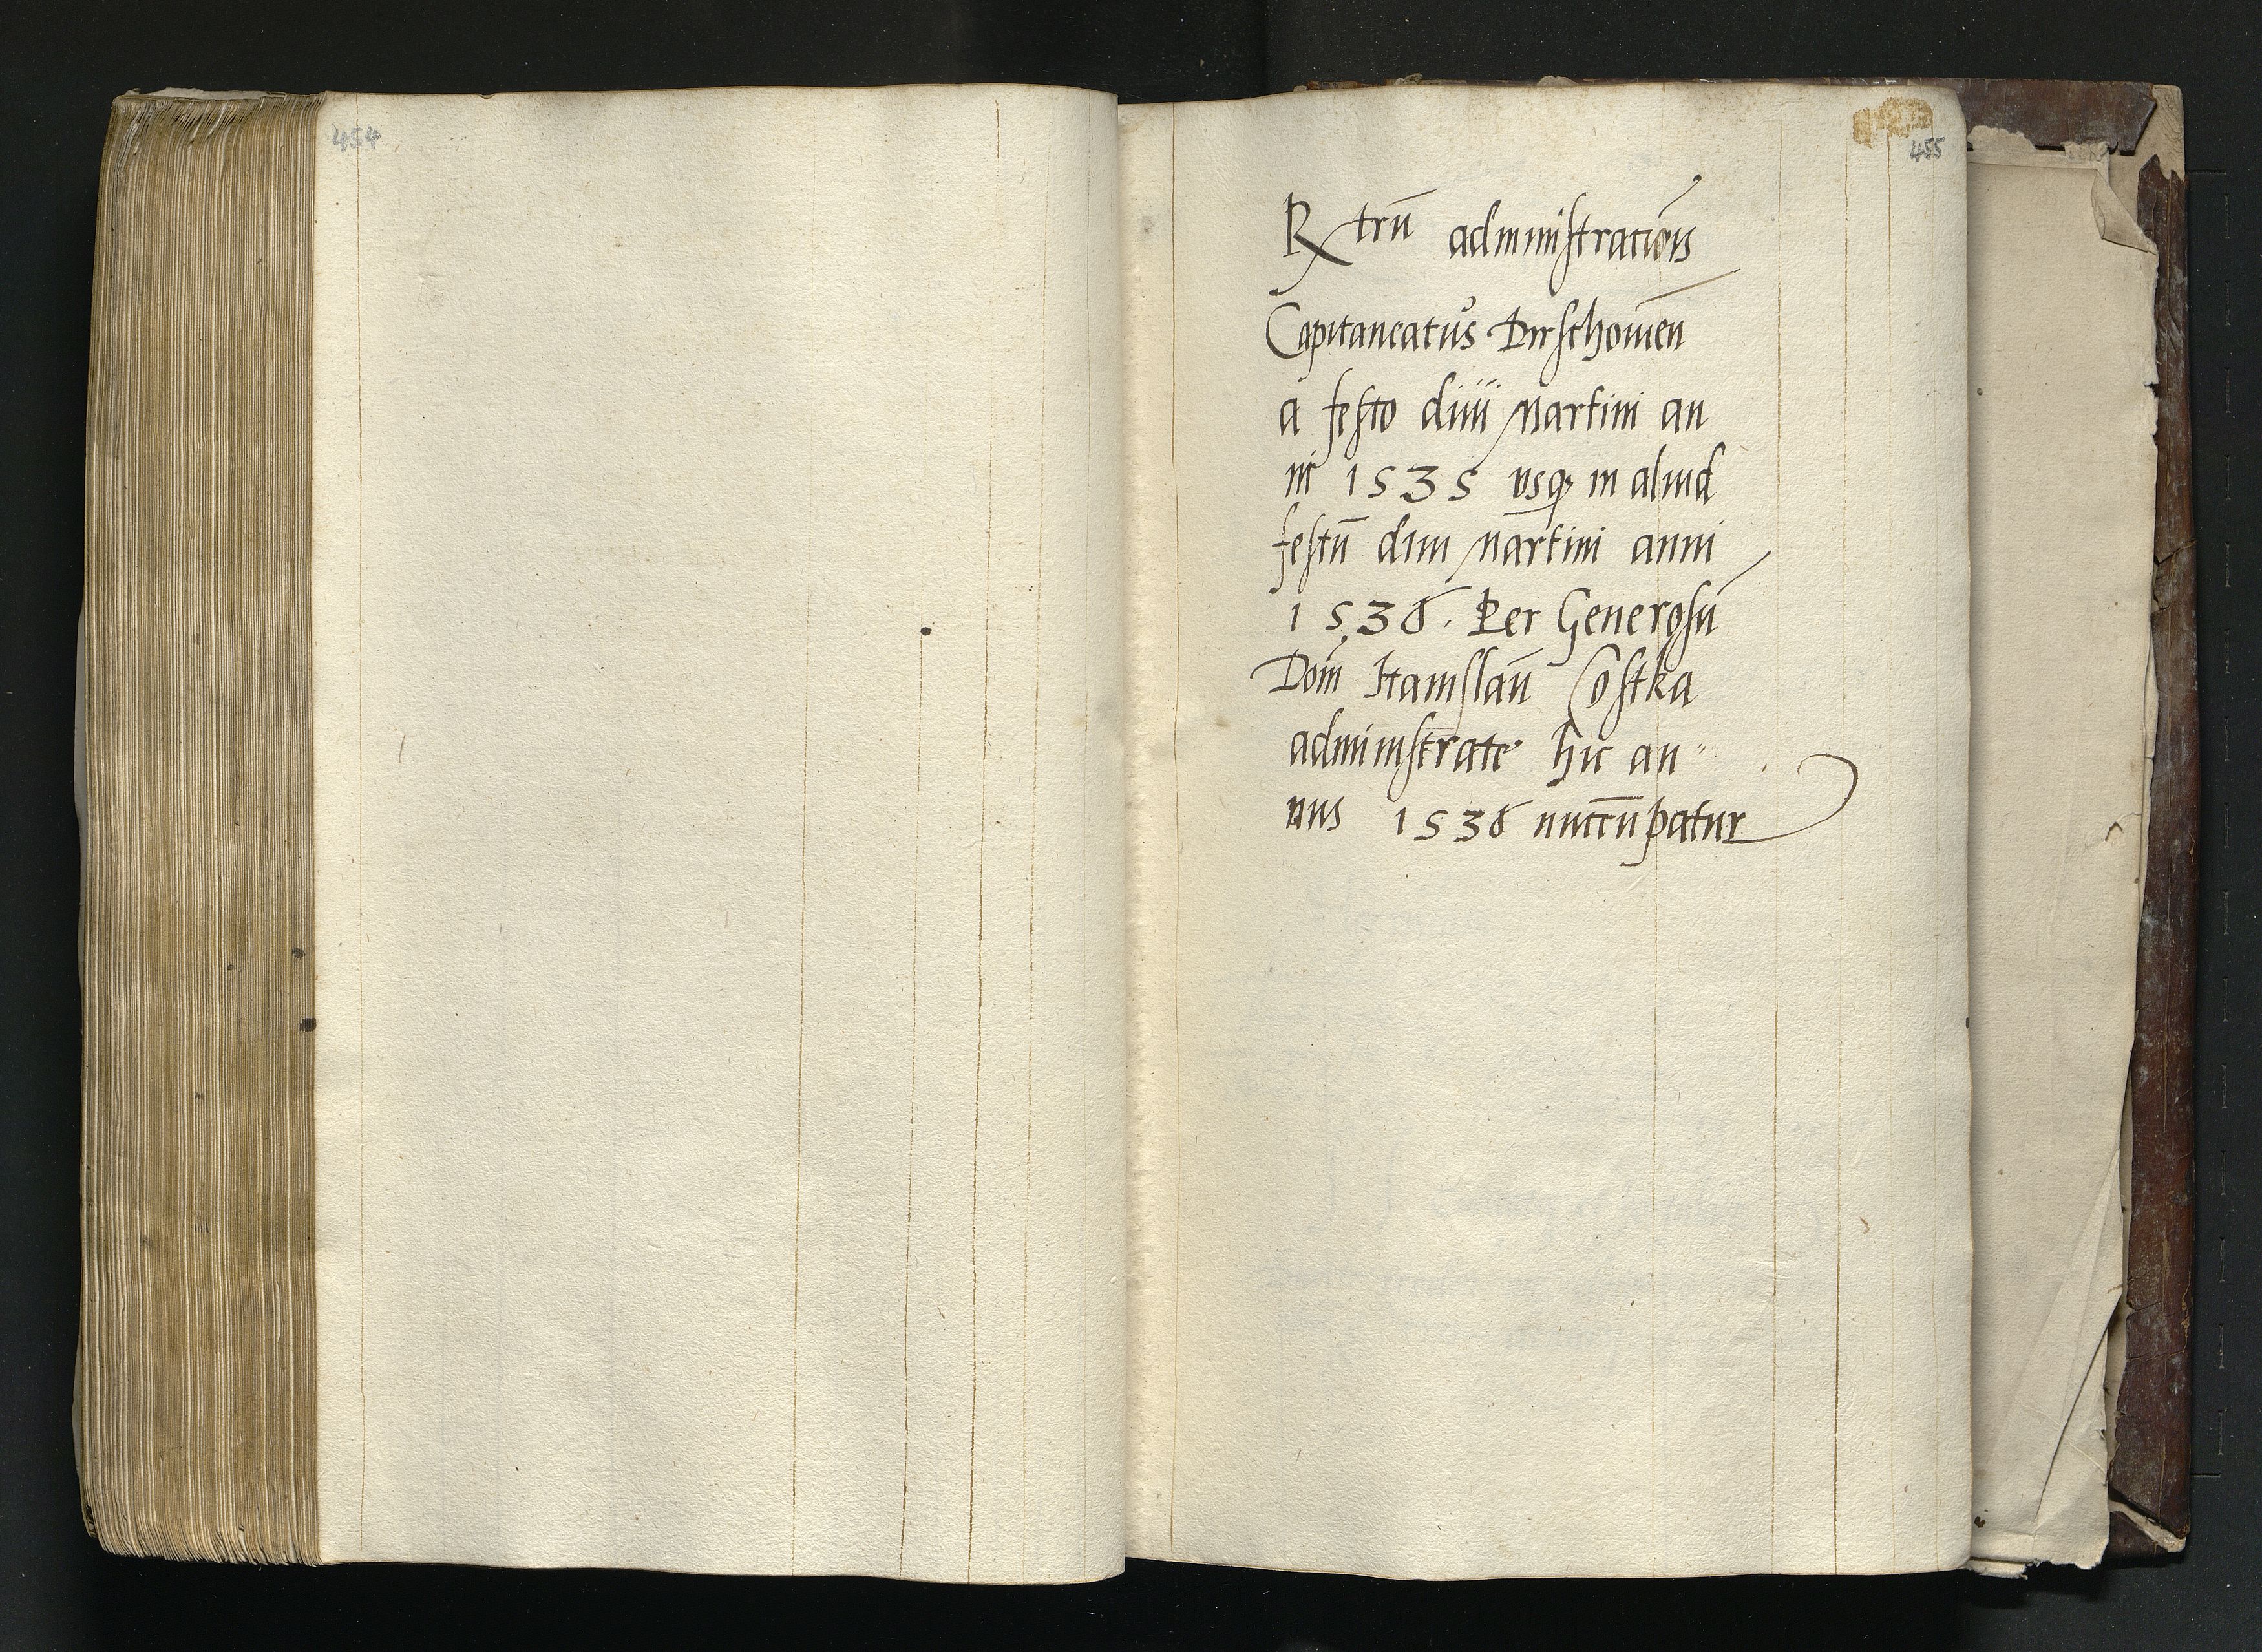 454
455
Rx̄trū administratiōis
Capitaneatus Dirschouien̄
a festo diui Martini an
ni 1535 vsq̨ in aliud
festū diui Martini anni
1536. Per Generosū
Dōm Stanislaū Costka
administrate hic an-
nus 1536 nuccupatur